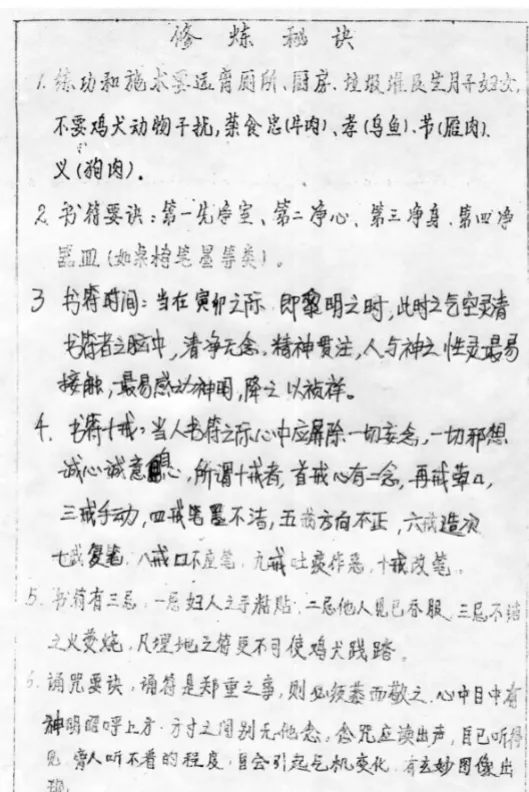 修炼秘诀
1. 练功和施术要远离厕所、厨房、垃圾堆及坐月子妇女,
不要鸡犬动物干扰,禁食忠(牛肉)、孝(乌鱼)、节(雁肉)、
义(狗肉)。
2. 书符要诀:第一先净室、第二净心、第三净身、第四净
器皿(如桌椅笔墨等类)。
3 书符时间:当在寅卯之际 即黎明之时,此时之气空灵清
书符者之脑中,清净无念,精神贯注,人与神之性灵最易
接触,最易感动神明,降之以祯祥。
4. 书符十戒:当人书符之际心中应屏除一切妄念,一切邪想
诚心诚意 ,所谓十戒者,首戒心有二念,再戒
三戒手动,四戒笔墨不洁,五戒方向不正,六戒造次
七戒复笔,八戒口不 笔,九戒吐痰作恶,十戒改笔。
5. 书符有三忌,一忌妇人之手粘贴,二忌他人见已吞服,三忌不洁
之火焚烧,凡埋地之符更不可使鸡犬践踏。
6. 诵咒要诀,诵符是郑重之事,则必须恭而敬之,心中目中有
神明 呼上方,方寸之间别无他念,念咒应读出声,自己听得
见 旁人听不着的程度,自会引起气机变化,有玄妙图像出
现